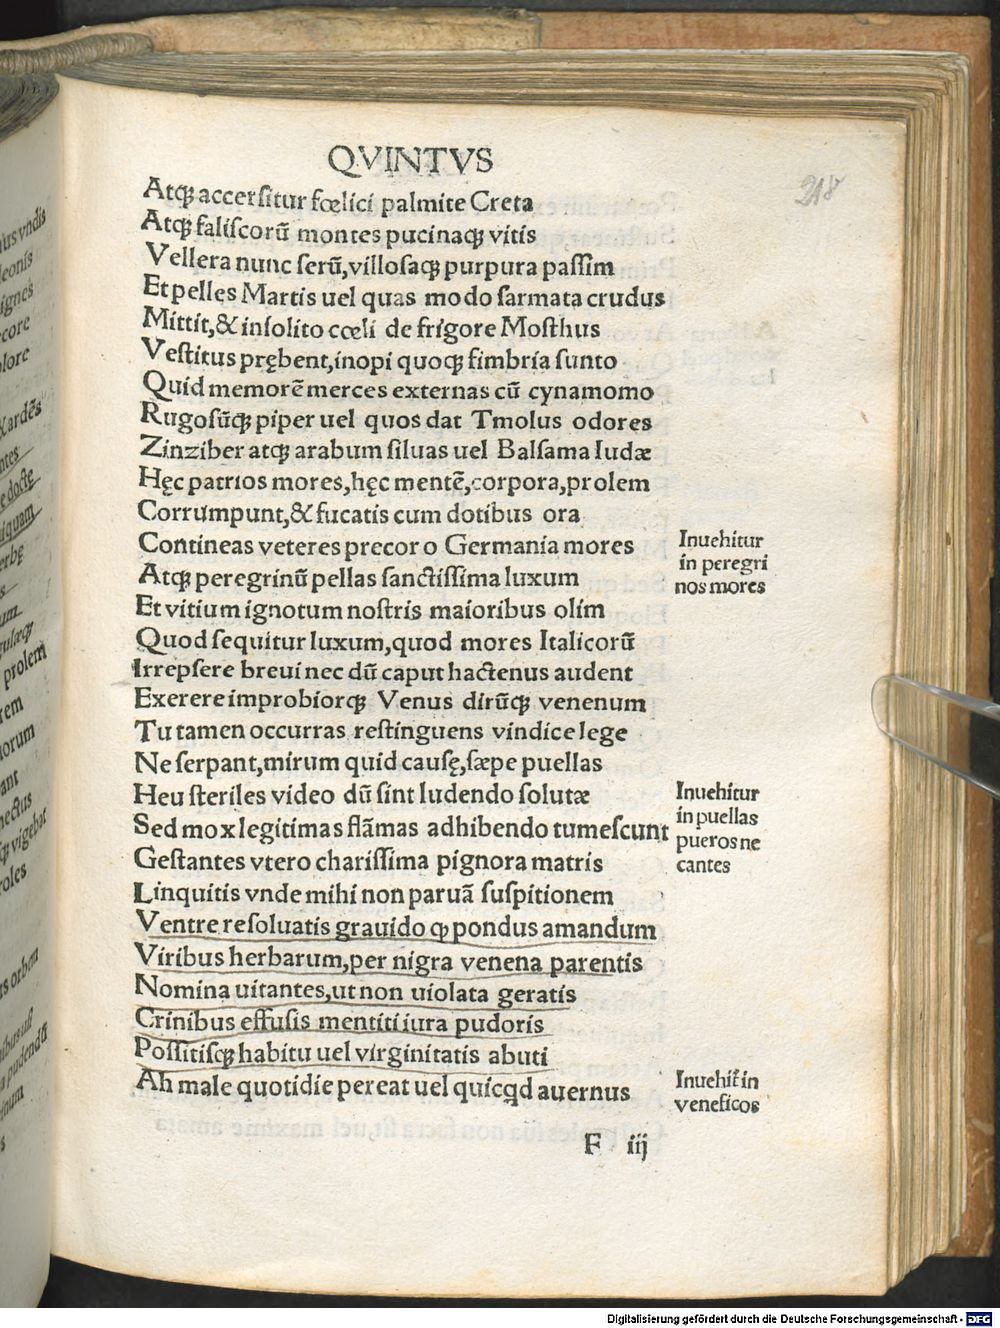 QVINTVS
218
Atqꝫ accersitur fœlici palmite Creta
Atqꝫ faliscorũ montes pucinaqꝫ vitis
Vellera nunc serũ,villosaqꝫ purpura passim
Et pelles Martis uel quas modo sarmata crudus
Mittit,& insolito cœli de frigore Mosthus
Vestitus prębent,inopi quoqꝫ fimbria sunto
Quid memorẽ merces externas cũ cynamomo
Rugosũqꝫ piper uel quos dat Tmolus odores
Zinziber atqꝫ arabum siluas uel Balsama Iudæ
Hęc patrios mores,hęc mentẽ,corpora,prolem
Corrumpunt,& fucatis cum dotibus ora
Contineas veteres precor o Germania mores
Atqꝫ peregrinũ pellas sanctissima luxum
Et vitium ignotum nostris maioribus olim
Quod sequitur luxum,quod mores Italicorũ
Irrepsere breui nec dũ caput hactenus audent
Exerere improbiorqꝫ Venus dirũqꝫ venenum
Tu tamen occurras restinguens vindice lege
Ne serpant,mirum quid causę,sæpe puellas
Heu steriles video dũ sint ludendo solutæ
Sed mox legitimas flãmas adhibendo tumescunt
Gestantes vtero charissima pignora matris
Linquitis vnde mihi non paruã suspitionem
Ventre resoluatis grauido qꝫ pondus amandum
Viribus herbarum,per nigra venena parentis
Nomina uitantes,ut non uiolata geratis
Crinibus effusis mentiti iura pudoris
Possitisqꝫ habitu uel virginitatis abuti
Ah male quotidie pereat uel quicqd auernus
Inuehitur
in peregri
nos mores
Inuehitur
in puellas
pueros ne
cantes
Inuehit̃ in
veneficos
F iij
Digitalisierung gefördert durch die Deutsche Forschungsgemeinschaft - DFG